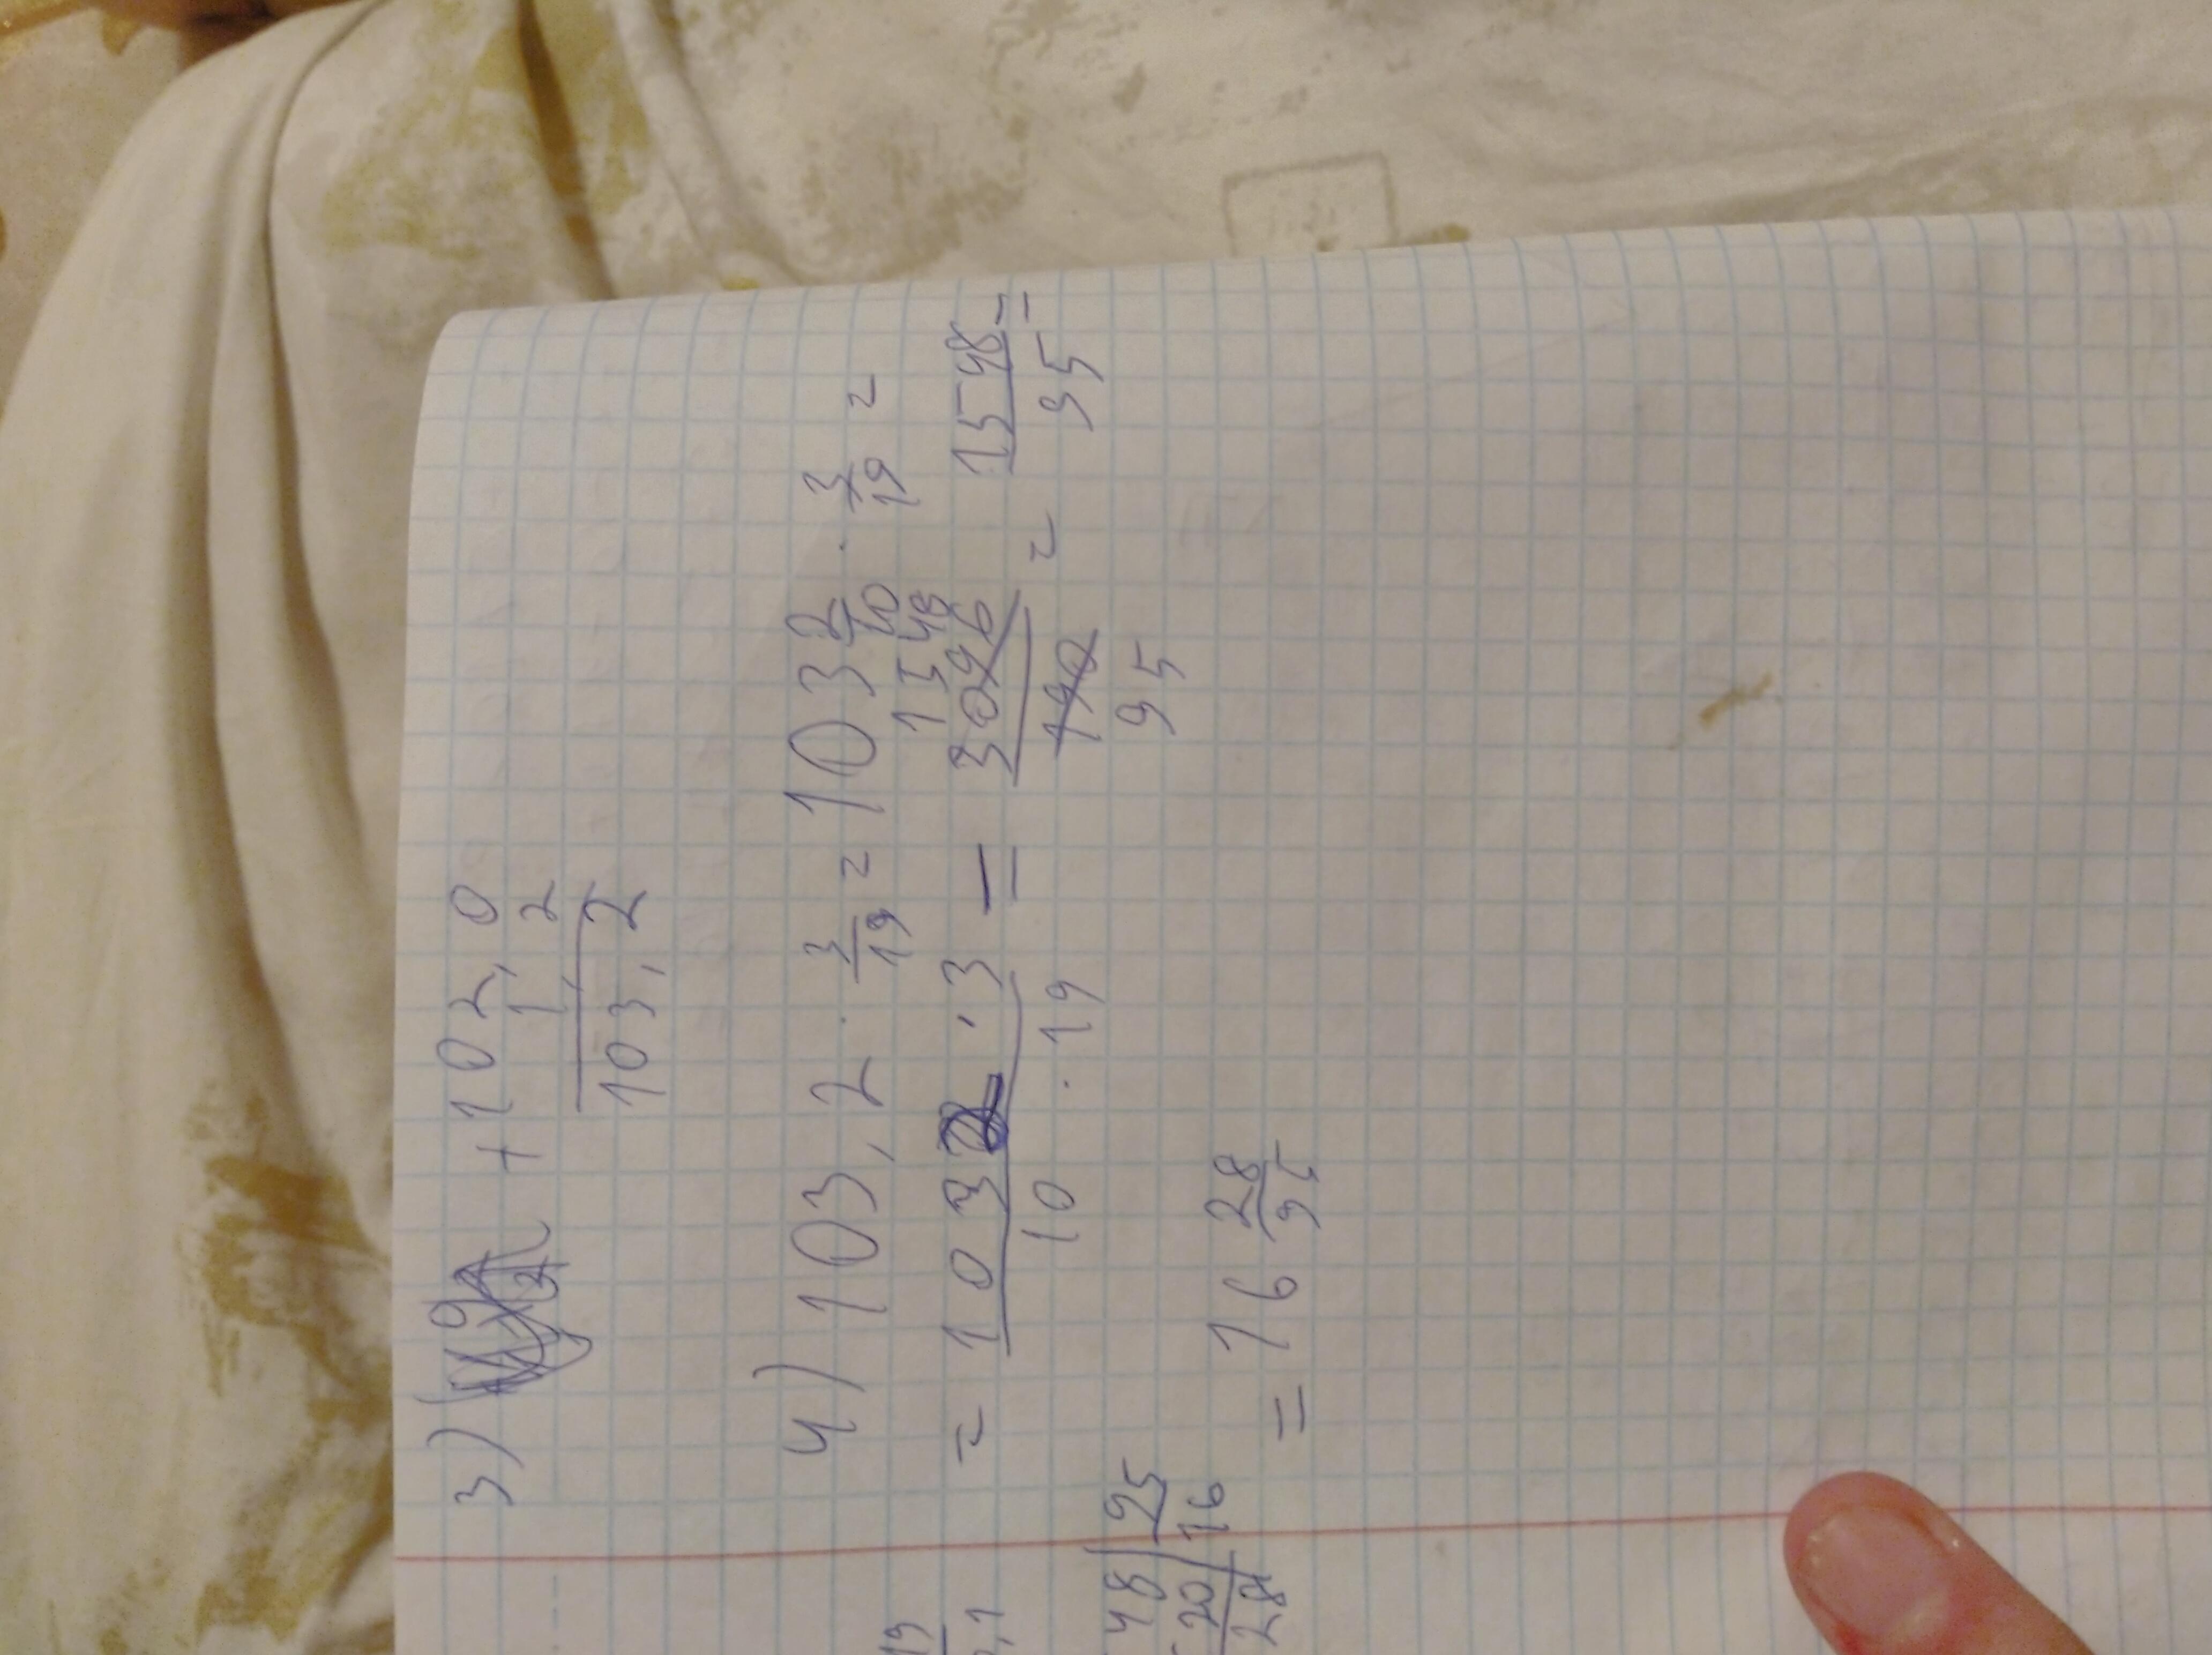 3) + 102,0
1,2
103,2
4) 103,2 · 3/19 = 103 2/10 · 3/19 =
= 1032 · 3 / 10 · 19 = 3096 / 190 = 1548 / 95 =
1548
95
48 | 95
20 | 16
28
= 16 28/95
19
,1